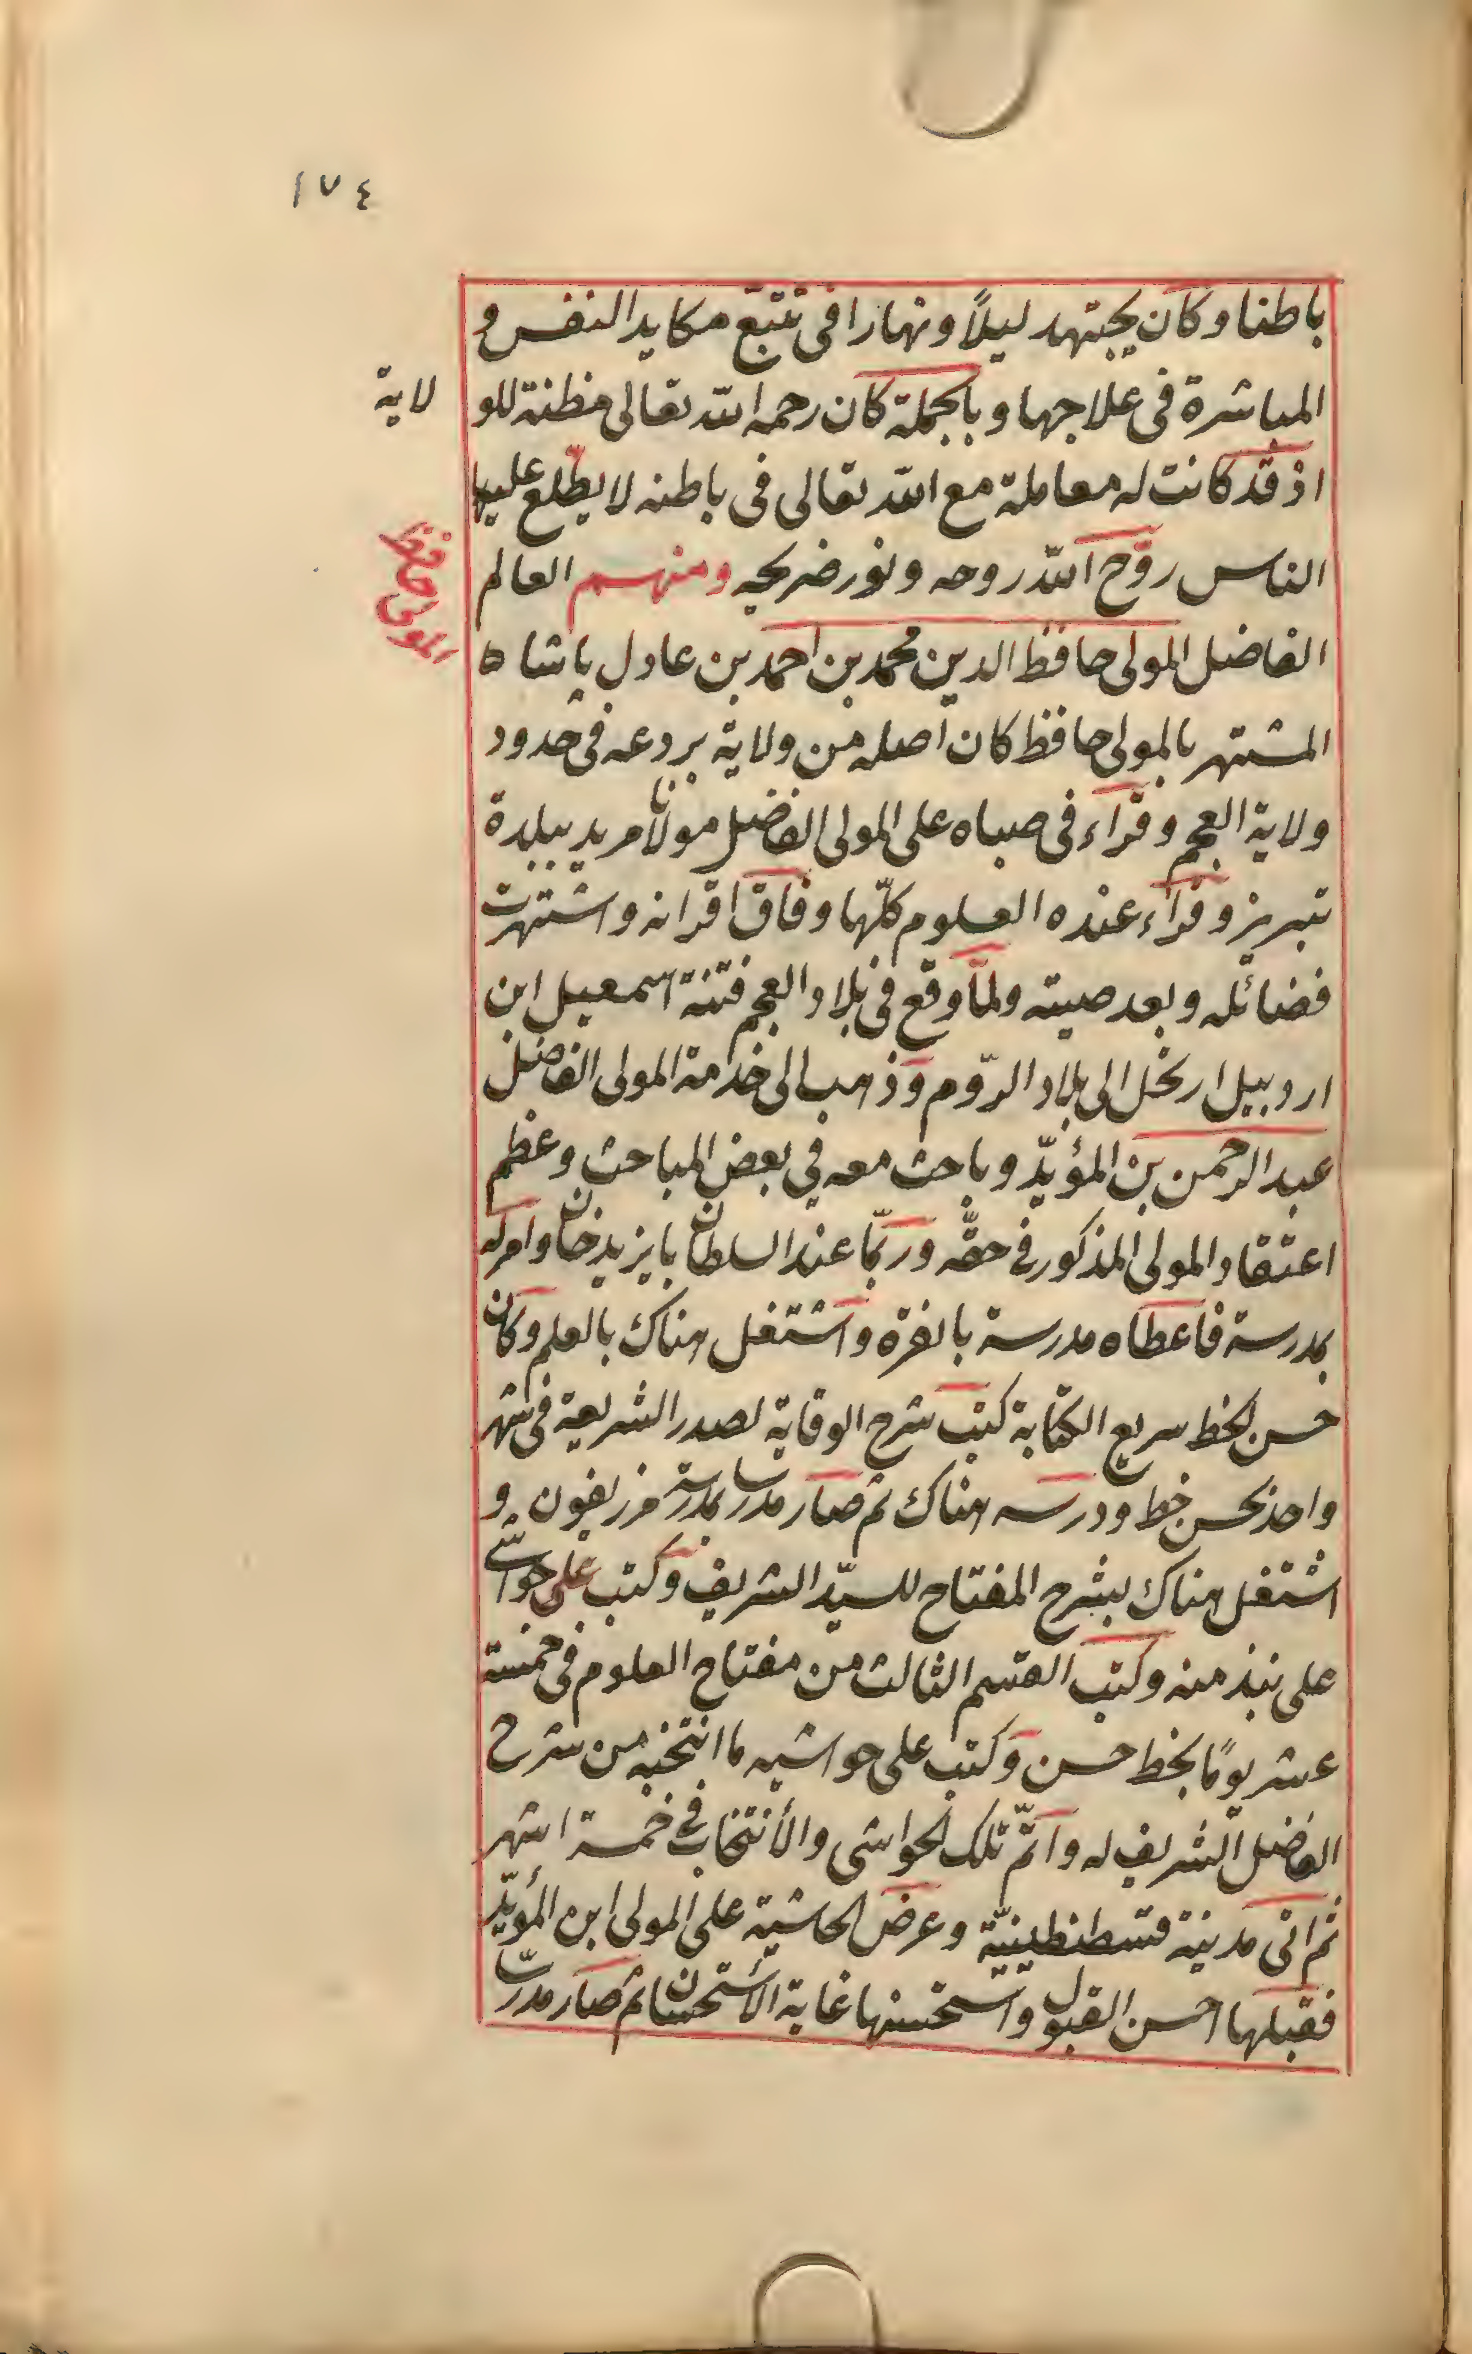 ١٧٤
باطنا وكان يجتهد ليلاً ونهارا فى تتبع مكايد النفس و
المباشرة فى علاجها وبالجملة كان رحمه الله تعالى مظنة للو
لاية
اذ قد كانت له معاملة مع الله تعالى فى باطنه لا يطّلع عليها
الناس روّح الله روحه ونور ضريحه ومنهم العالم
المولى حافظ
الفاضل المولى حافظ الدين محمد بن احمد بن عادل پاشا
المشتهر بالمولى حافظ كان اصله من ولاية بردعه فى حدود
ولاية العجم وقراء فى صباه على المولى الفاضل مولانا مريد ببلدة
تبريز وقراء عنده العلوم كلّها وفاق اقرانه واشتهرت
فضائله وبعد صيته ولمّا وقع فى بلاد العجم فتنة اسمعيل ابن
اردبيل ارتحل الى بلاد الرّوم وذهب الى خدمة المولى الفاضل
عبد الرحمن بن المؤيّد وباحث معه في بعض المباحث وعظم
اعتقاد المولى المذكور فى حقّه وربّا عند السلطان بايزيد خان وامر له
بمدرسة فاعطاه مدرسة بانقره واشتغل هناك بالعلم وكان
حسن الخط سريع الكتابة كتب شرح الوقاية لصدر الشريعة فى شهر
واحد بحسن خط ودرسه هناك ثم صار مدرسا بمدرسة مرزيفون و
اشتغل هناك بشرح المفتاح للسيّد الشريف وكتب على حواشى
على نبذ منه وكتب القسم الثالث من مفتاح العلوم فى خمسة
عشر يومًا بخط حسن وكتب على حواشيه ما انتخبه من شرح
الفاضل الشريف له واتمّ تلك الحواشى والأنتخاب فى خمسة اشهر
ثم اتى مدينة قسطنطينيّة وعرض الحاشية على المولى ابن المؤيّد
فقبلها احسن القبول واستحسنها غاية الأستحسان ثم صار مدرّسا